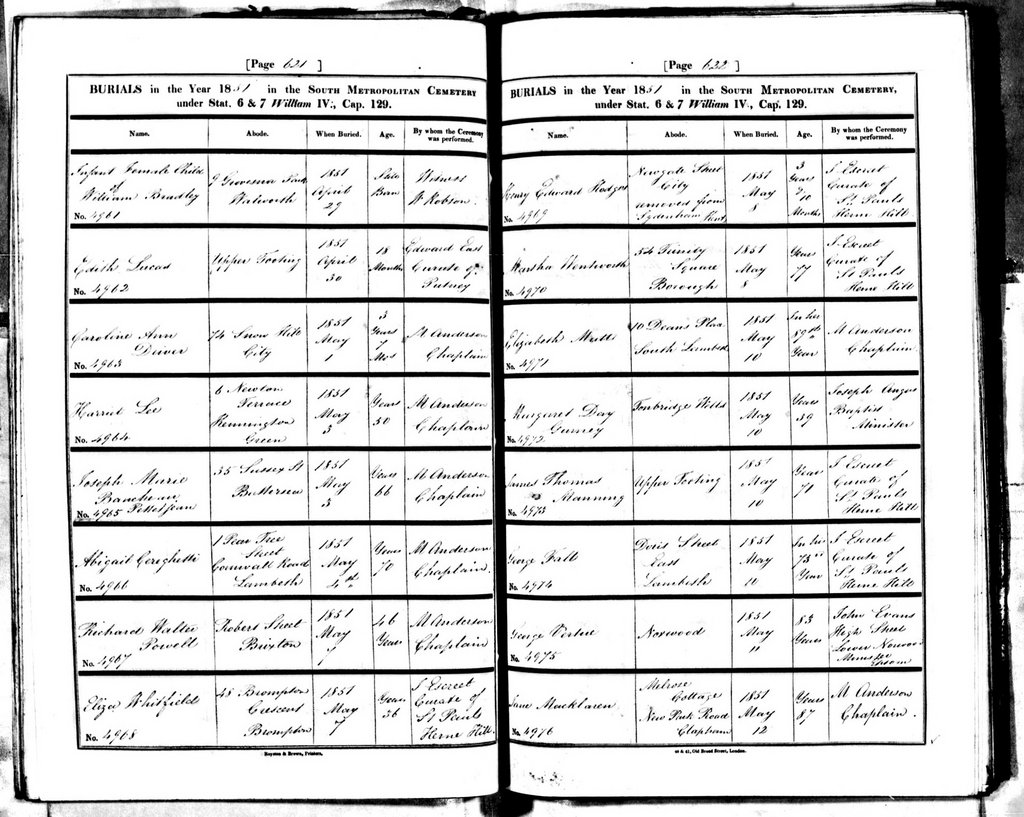 [Page 621 ]
BURIALS in the Year 1851 in the SOUTH METROPOLITAN CEMETERY
under Stat. 6 & 7 William IV., Cap. 129.
Name. Abode. When Buried. Age. By whom the Ceremony was performed.
Infant Female Child
of
William Bradley
No. 4961
9 Grosvenor
Walworth
1851
April
29
Still
Born
Witness
W Robson
Edith Lucas
No. 4962
Upper Tooting
1851
April
30
18
Months
Edward East
Curate of
Putney
Caroline Ann
Driver
No. 4963
74 Snow Hill
City
1851
May
1
3
Years
7
Mos
M Anderson
Chaplain
Harriet Lee
No. 4964
6 Newton
Terrace
Kennington
Green
1851
May
3
Years
50
M Anderson
Chaplain
Joseph Marie
No. 4965 Petitjean
35 Sussex St
Battersea
1851
May
3
Years
66
M Anderson
Chaplain
Abigail
No. 4966
1 Pear Tree
Street
Cornwall Road
Lambeth
1851
May
4th
Years
70
M Anderson
Chaplain
Richard Walter
Powell
No. 4967
Robert Street
Brixton
1851
May
7
46
Years
M Anderson
Chaplain
Eliza Whitfield
No. 4968
45 Brompton
Crescent
Brompton
1851
May
7
Years
36
J Escreet
Curate of
St Pauls
Herne Hill
Royston & Brown, Printers,
[Page 622 ]
BURIALS in the Year 1851 in the SOUTH METROPOLITAN CEMETERY,
under Stat. 6 & 7 William IV., Cap. 129.
Name. Abode. When Buried. Age. By whom the Ceremony was performed.
Henry Edward Hodges
No. 4969
Newgate Street
City
removed from
Sydenham Kent
1851
May
8
3
Years
10
Months
J Escreet
Curate of
St Pauls
Herne Hill
Martha Wentworth
No. 4970
54 Trinity
Square
Borough
1851
May
8
Years
77
J Escreet
Curate of
St Pauls
Herne Hill
Elizabeth
No. 4971
10 Deans Place
South Lambeth
1851
May
10
In her
89th
Year
M Anderson
Chaplain
Margaret Day
Gurney
No. 4972
Tonbridge Wells
1851
May
10
Years
39
Joseph Angus
Baptist
Minister
James Thomas
Manning
No. 4973
Upper Tooting
1851
May
10
Years
71
J Escreet
Curate of
St Pauls
Herne Hill
George
No. 4974
Doris Street
East
Lambeth
1851
May
10
In his
73rd
Year
J Escreet
Curate of
St Pauls
Herne Hill
George Virtue
No. 4975
Norwood
1851
May
11
83
Years
John Evans
High Street
Lower Norwood
Minister
Jane Macklaren
No. 4976
Melrose
Cottage
New Park Road
Clapham
1851
May
12
Years
87
M Anderson
Chaplain.
& 41, Old Broad Street, London.